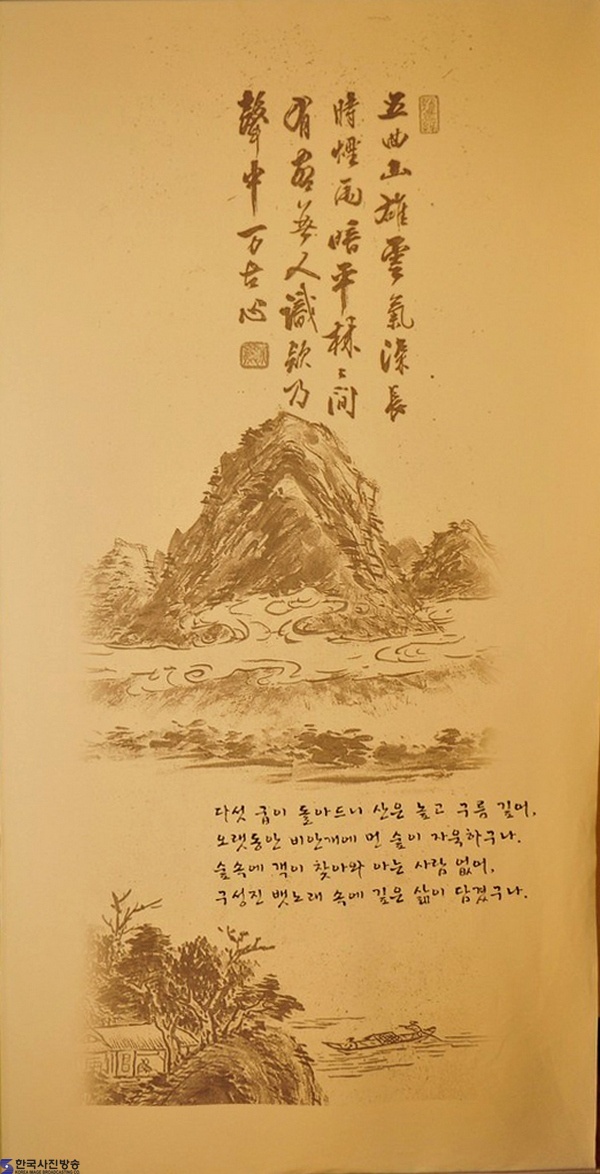 五曲山雄雲氣深長
時煙雨暗平林〻間
有客無人識欸乃
聲中万古心
다섯 굽이 돌아드니 산은 높고 구름 깊어,
오랫동안 비안개에 먼 숲이 자욱하구나.
숲속에 객이 찾아와 아는 사람 없어,
구성진 뱃노래 속에 깊은 삶이 담겼구나.
한국사진방송
KOREA IMAGE BROADCASTING CO.